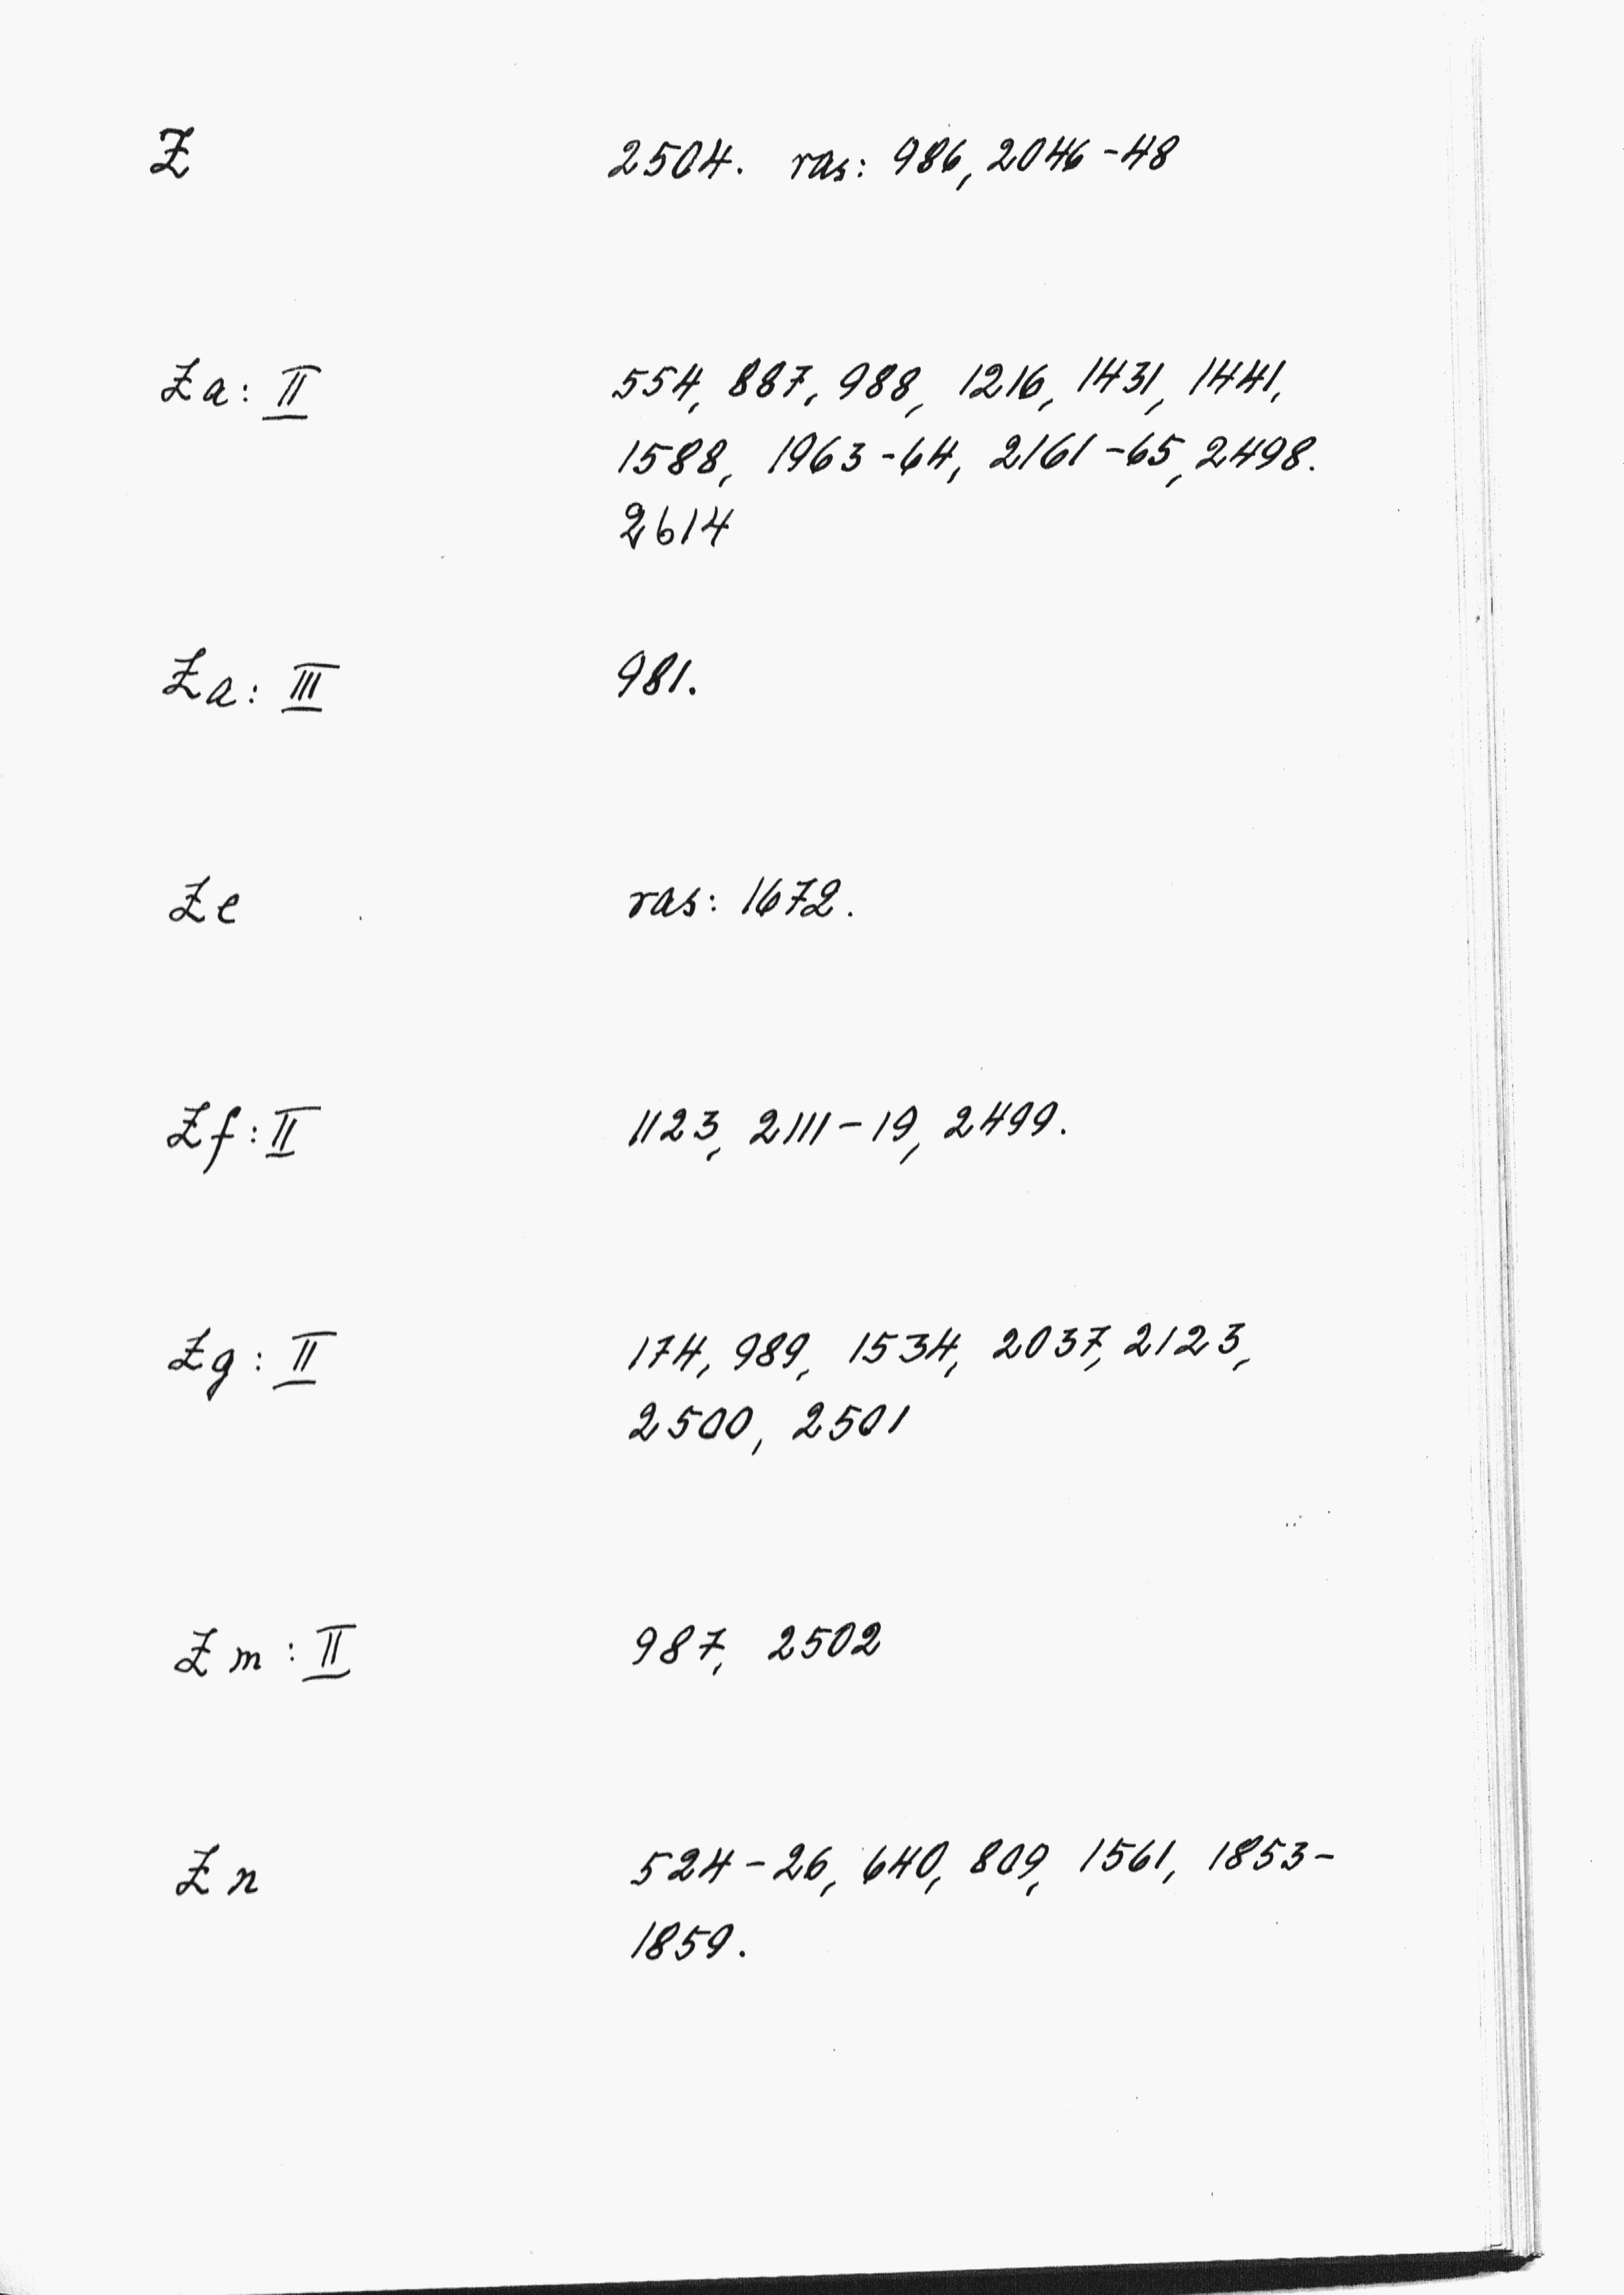 Z 2504. ras: 986, 2046-48
Za: II 554, 887, 988, 1216, 1431, 1441,
1588, 1963-64, 2161-65, 2498.
2614
Za: III 981.
Ze ras: 1672.
Zf: II 1123, 2111-19, 2499.
Zg: II 174, 989, 1534, 2037, 2123,
2500, 2501
Zm: II 987, 2502
Zn 524-26, 640, 809, 1561, 1853-
1859.